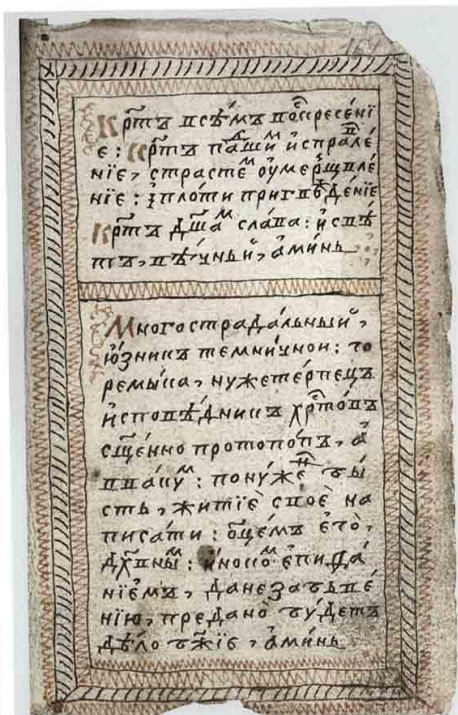 Крⷭ҇тъ всѣ́мъ воскресе́нїе
е : Крⷭ҇тъ па́дшимъ и҆справле́
нїе, страсте́мъ оу҆мерщвле́
нїе : и҆ пло́ти пригвожде́нїе
Крⷭ҇тъ дш҃амъ сла́ва : и҆ свѣ́
тъ, вѣ́чный, а҆ми́нь
Многострада́льный,
ю҆́зникъ темни́чной : го
ремы́ка, нужетерпецъ
и҆сповѣ́дникъ хрⷭ҇то́въ
сщ҃е́нно протопо́пъ, а҆
ввакум : пону́женъ бы́
сть, житїѐ своѐ на
писа́ти : ѻ҆ц҃е́мъ є҆гѡ̀,
дх҃о́внымъ : и҆́нокомъ є҆пифа́
нїемъ, да не забве́
нїю, предано̀ бу́детъ
дѣ́ло бж҃їе, а҆ми́нь